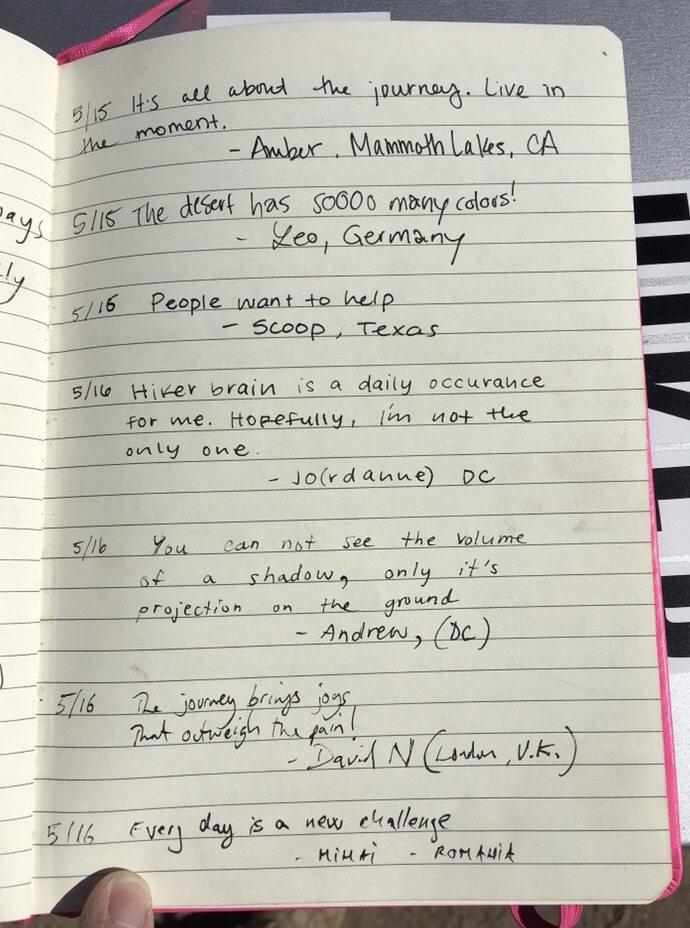 ays
ly
5/15 It's all about the journey. Live in
the moment.
- Amber, Mammoth Lakes, CA
5/15 The desert has soooo many colors!
- Leo, Germany
5/16 People want to help
- Scoop, Texas
5/16 Hiker brain is a daily occurance
for me. Hopefully, i'm not the
only one.
- Jo(rdanne) DC
5/16 You can not see the volume
of a shadow, only it's
projection on the ground
- Andrew, (DC)
5/16 The journey brings joys
That outweigh the pain!
- David N (London, U.K.)
5/16 Every day is a new challenge
- MIHAI - ROMANIA